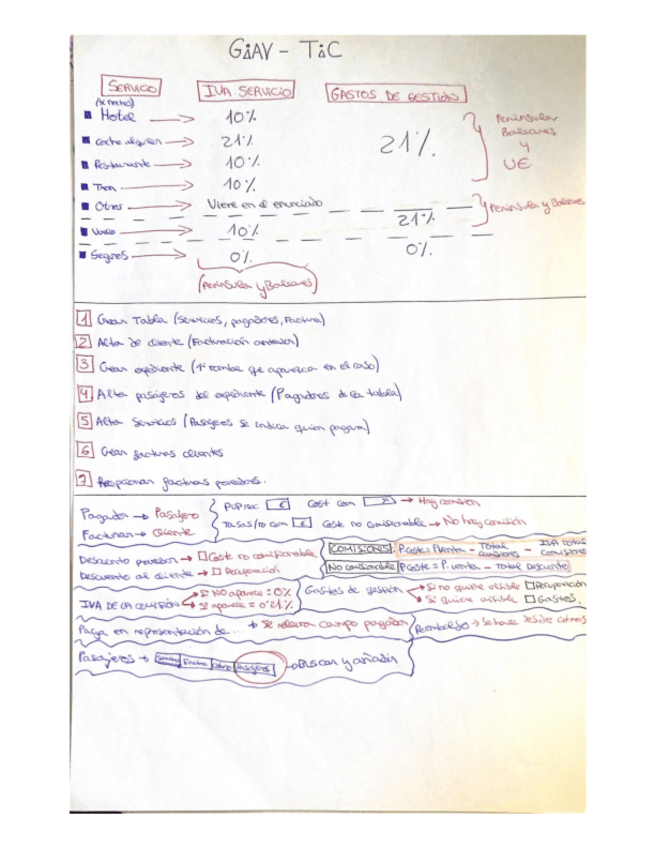 GiAV - TiC
SERVICIO IVA SERVICIO GASTOS DE GESTIÓN
(x noches)
Hotel → 10%
Coche alquiler → 21% 21%
Restaurante → 10%
Tren → 10%
Peninsula Baleares y UE
Otros Viene en el enunciado
Vuelo → 10% 21%
Peninsula y Baleares
Seguros → 0% 0%
(Peninsula y Baleares)
1 Crear Tabla (Servicios, pagadores, Factura)
2 Alta de cliente (Facturación
3 Crear expediente (1º nombre que aparezca en el caso)
4 Alta pasajeros del expediente (Pagadores de la tabla)
5 Alta Servicios (Pasajeros se indica quien pagara)
6 Crear facturas clientes
7 facturas
Pagador → Pasajero
Facturan → Cliente
PVP/iec € Cost com % → Hay comisión
Tasas/no com € Coste no comisionable → No hay comisión
Descuento proveedor → Coste no comisionable
Descuento al cliente → Recuperación
COMISIONES P.Coste = P.Venta - Total comisiones - IVA total comisiones
No comisionable P.Coste = P.venta - Total Descuento
IVA DE LA COMISIÓN → Si NO aparece = 0%
→ Si aparece = 0'21%
Gastos de gestión → Si no quiere visible Recuperación
→ Si quiere visible Gastos.
Paga en representación de... → Se rellena campo pagador
Reembolso → Se hace desde cobros
Pasajeros → Pasajeros → Buscar y añadir